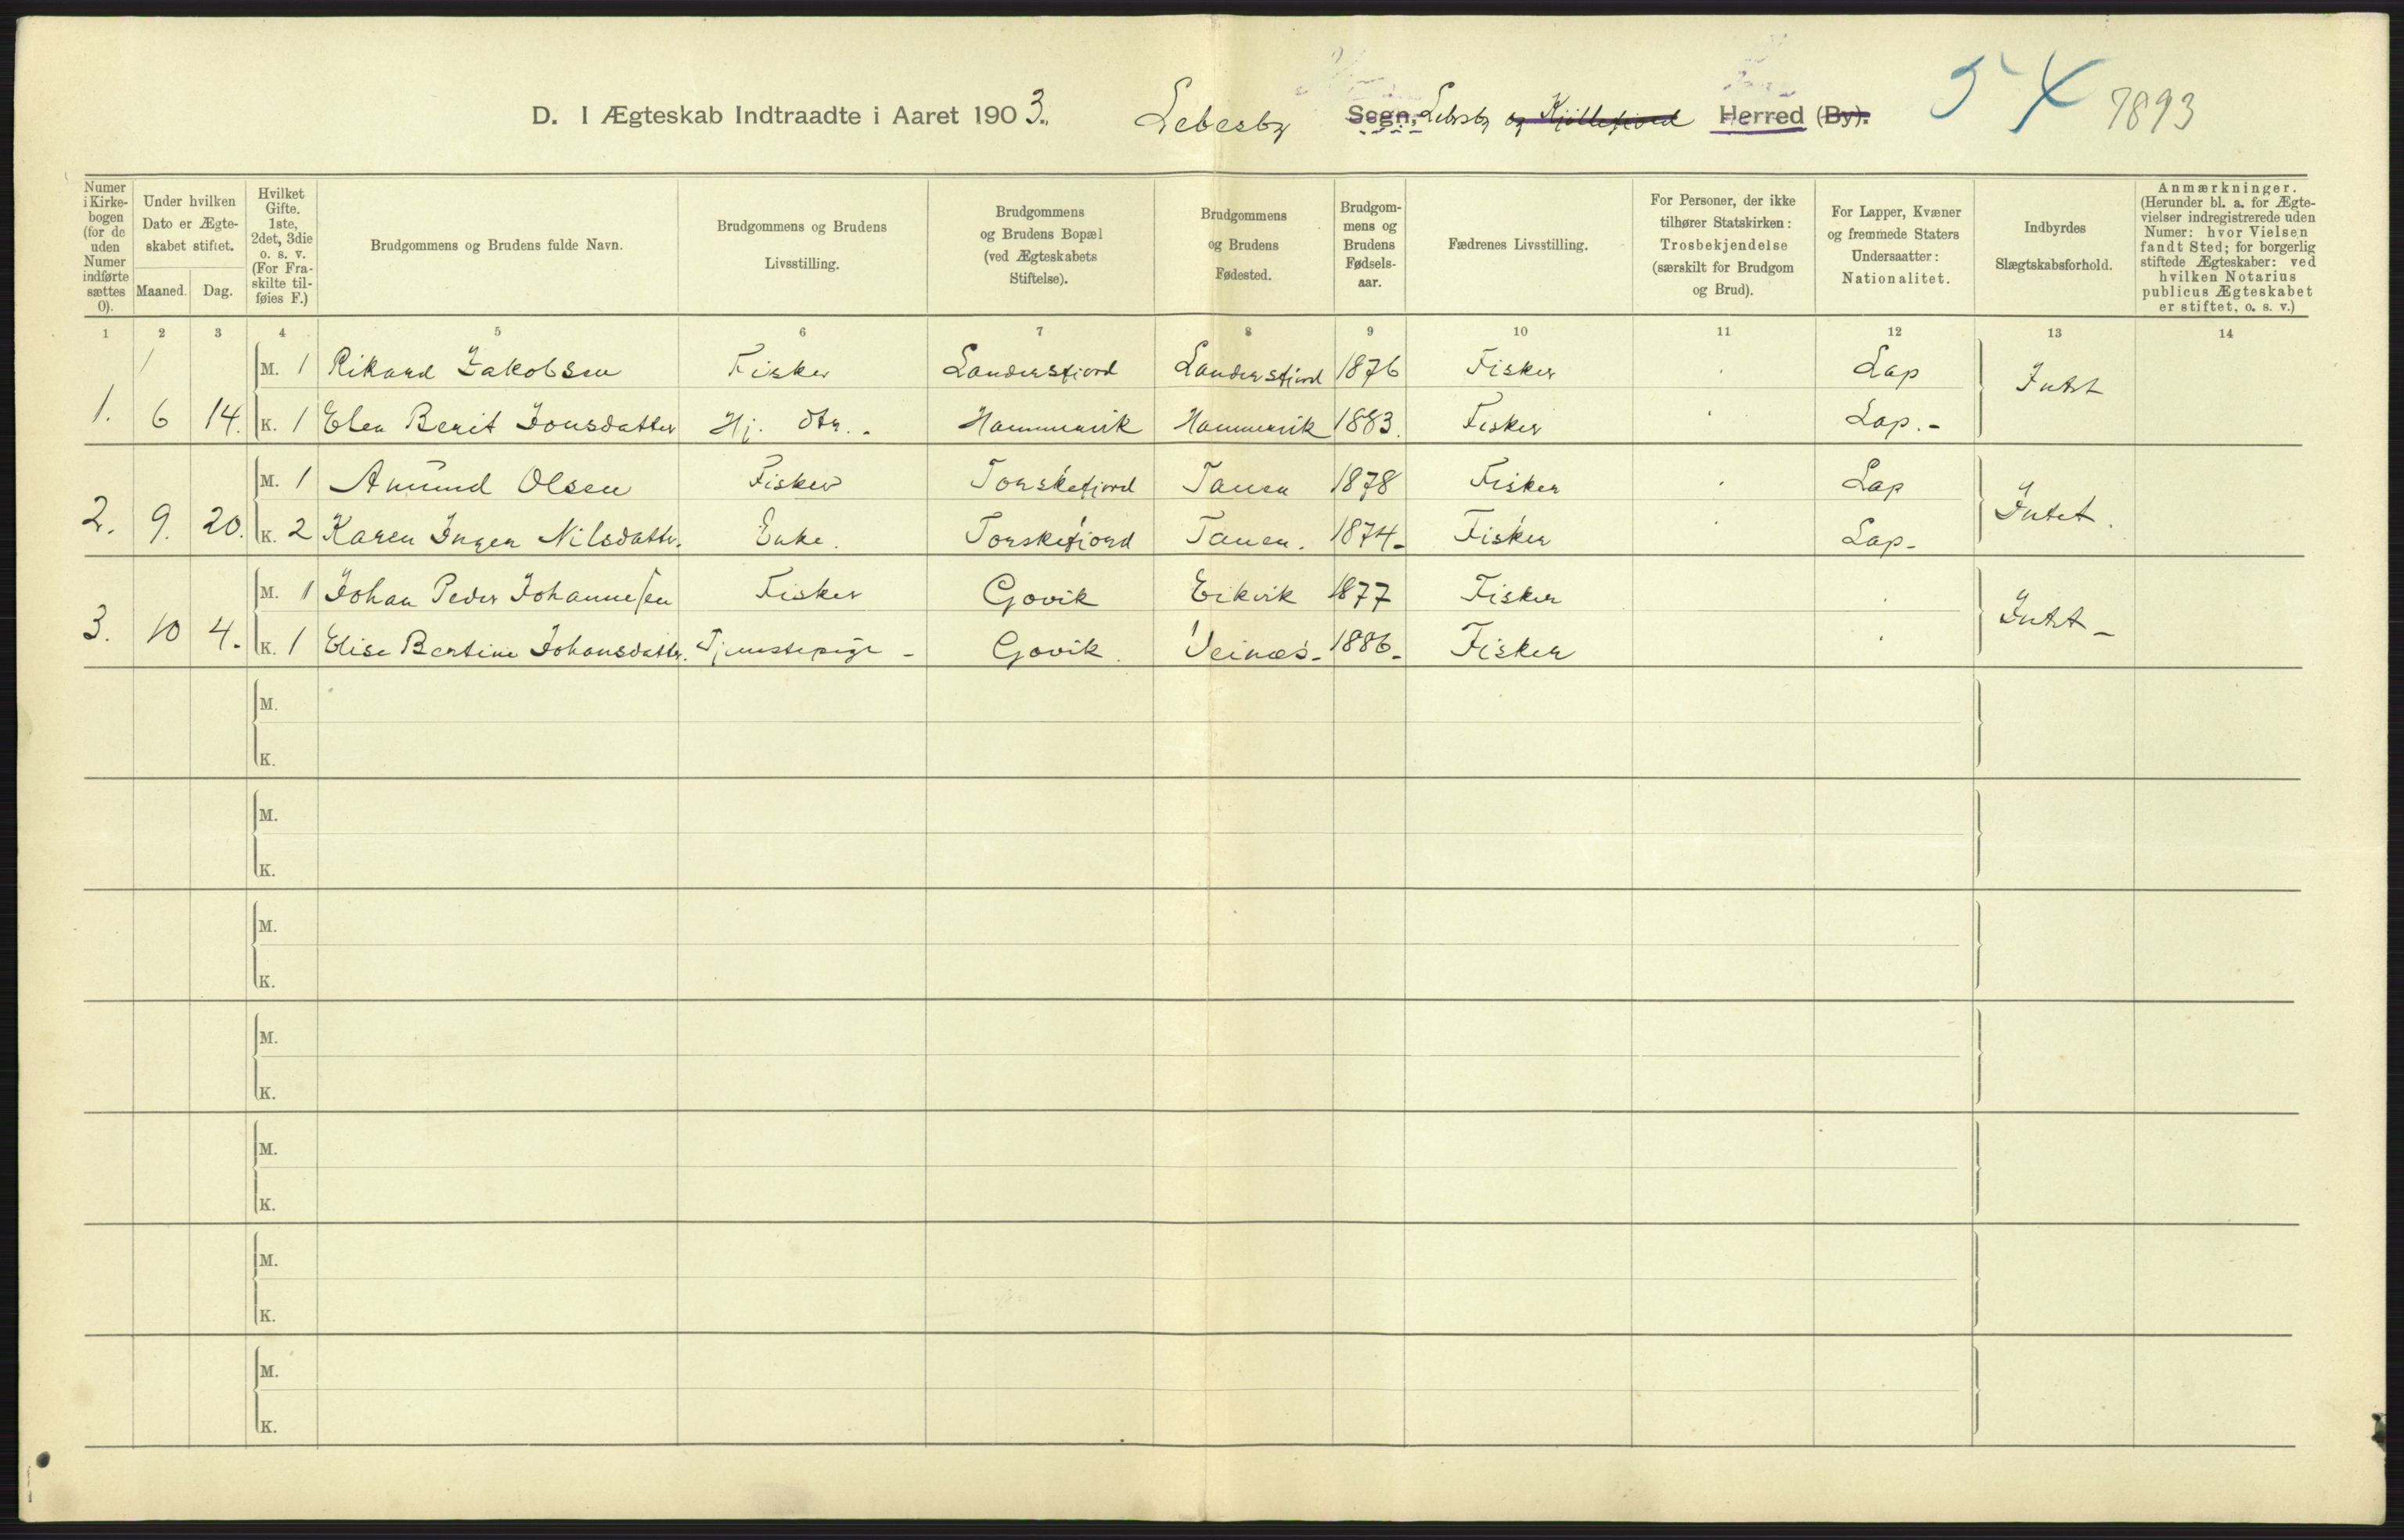 D. I Ægteskab Indtraadte i Aaret 1903. Lebesby Sogn, Lebesby og Kjöllefjord Herred (By). 54 7893
Numer i Kirkebogen (for de uden Numer indførte sættes 0).
Under hvilken Dato er Ægteskabet stiftet.
Maaned. Dag.
Hvilket Gifte. 1ste, 2det, 3die o. s. v. (For Fraskilte tilføies F.)
Brudgommens og Brudens fulde Navn.
Brudgommens og Brudens Livsstilling.
Brudgommens og Brudens Bopæl (ved Ægteskabets Stiftelse).
Brudgommens og Brudens Fødested.
Brudgommens og Brudens Fødselsaar.
Fædrenes Livsstilling.
For Personer, der ikke tilhører Statskirken: Trosbekjendelse (særskilt for Brudgom og Brud).
For Lapper, Kvæner og fremmede Staters Undersaatter: Nationalitet.
Indbyrdes Slægtskabsforhold.
Anmærkninger. (Herunder bl. a. for Ægtevielser indregistrerede uden Numer: hvor Vielsen fandt Sted; for borgerlig stiftede Ægteskaber: ved hvilken Notarius publicus Ægteskabet er stiftet, o. s. v.)
1 2 3 4 5 6 7 8 9 10 11 12 13 14
M. 1 Rikard Jakobsen Fisker Landersfjord Landersfjord 1876 Fisker Lap Intet
1. 6 14. K. 1 Elen Berit Jonsdatter Hj. dtr. Hammervik Hammervik 1883. Fisker Lap.-
M. 1 Amund Olsen Fisker Torskefjord Tanen 1878 Fisker Lap Intet.
2. 9. 20. K. 2 Karen Inger Nilsdattr. Enke. Torskefjord Tanen. 1874- Fisker Lap-
M. 1 Johan Peder Johannesen Fisker Govik Eikvik 1877 Fisker Intet-
3. 10 4. K. 1 Elise Bertine Johansdattr. Tjenestepige - Govik. Veines- 1886- Fisker
M.
K.
M.
K.
M.
K.
M.
K.
M.
K.
M.
K.
M.
K.